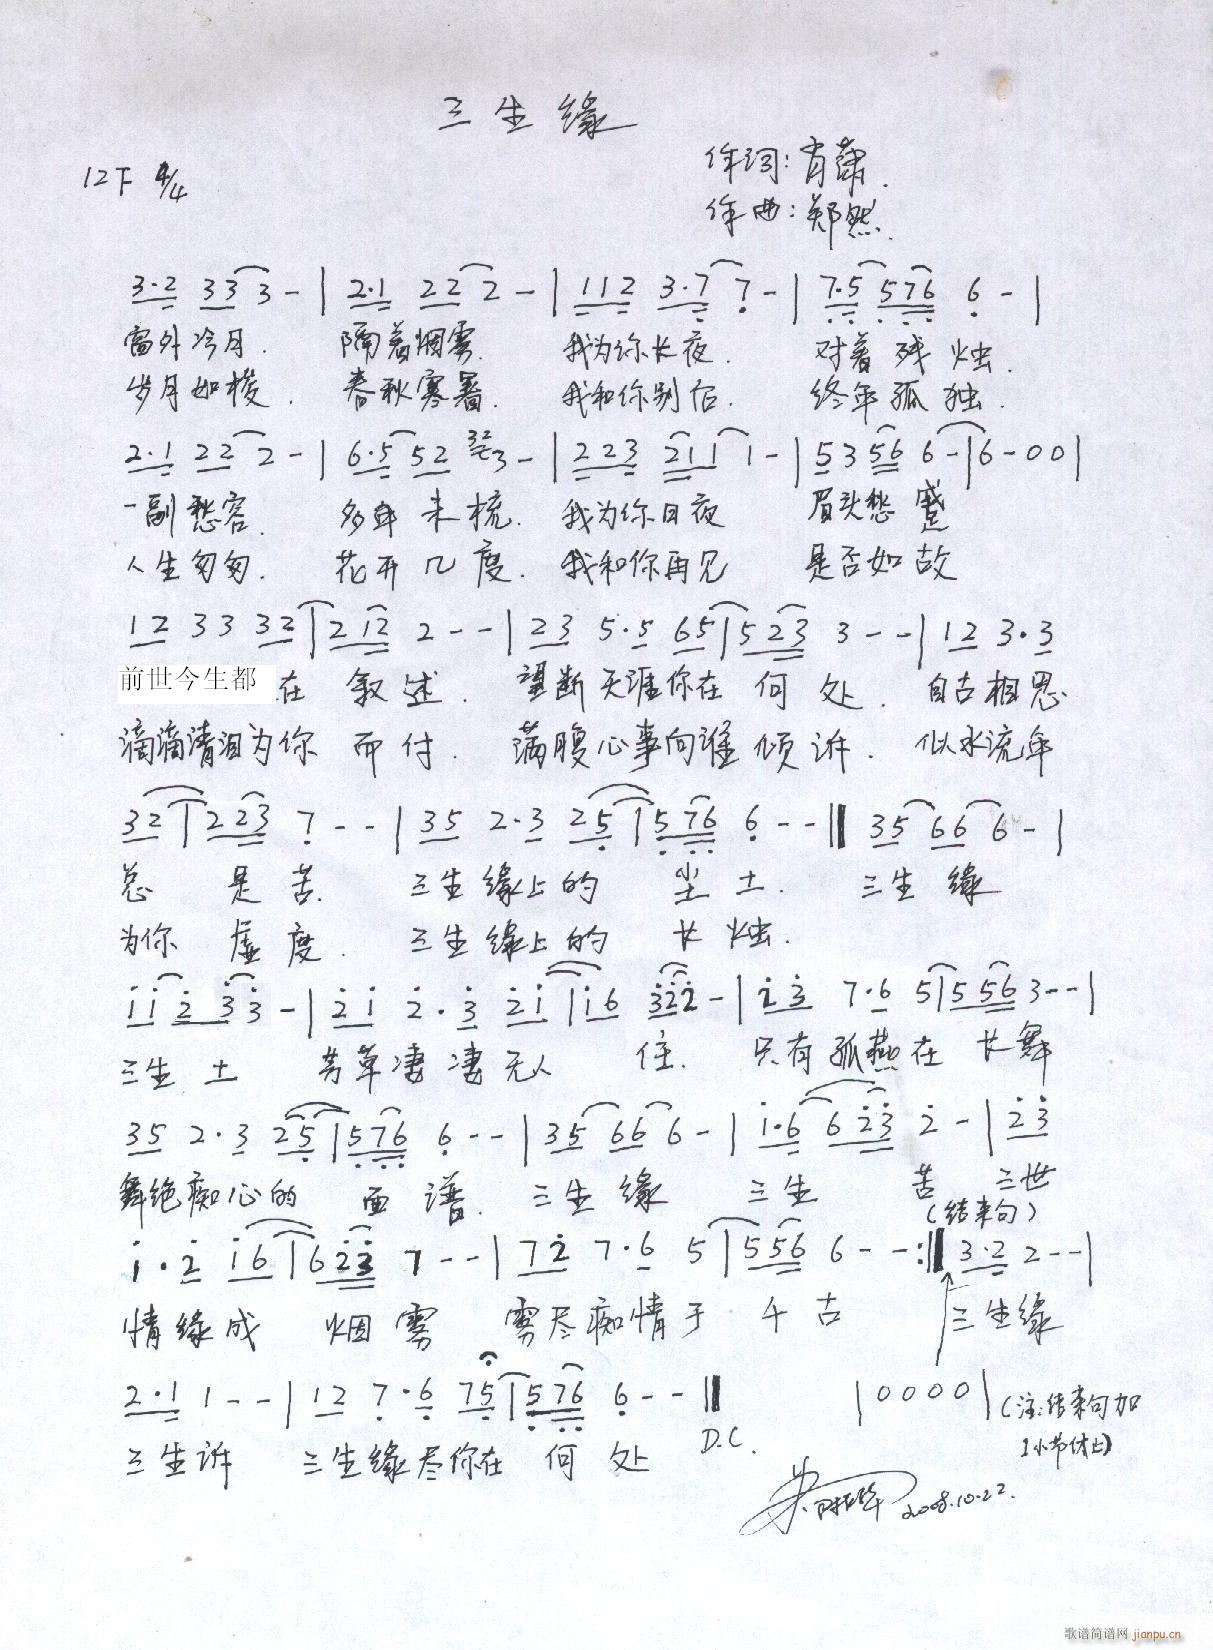 三生缘
作词:肖萧
12下 4/4
作曲:郑然
3·2 33 3 - | 2·1 22 2 - | 112 3·7 7 - | 7·5 576 6 - |
窗外冷月. 隔着烟雾. 我为你长夜. 对着残烛.
岁月如梭. 春秋寒暑. 我和你别后. 终年孤独.
2·1 22 2 - | 6·5 52 32 3 - | 223 211 1 - | 53 56 6 - | 6 - 0 0 |
一副愁容. 多年未梳. 我为你日夜 眉头愁蹙
人生匆匆. 花开几度. 我和你再见 是否如故
12 3 3 32 | 212 2 - - | 23 5·5 65 | 523 3 - - | 12 3·3
前世今生都在 叙述. 望断天涯你在 何处. 自古相思
滴滴清泪为你 而付. 满腹心事向谁倾诉. 似水流年
32 | 223 7 - - | 35 2·3 25 | 576 6 - - || 35 66 6 - |
总 是苦. 三生缘上的 尘土. 三生缘
为你 虚度. 三生缘上的 长烛.
11 2 3 3 - | 21 2·3 21 | 16 322 - | 23 7·6 5 | 556 3 - - |
三生土 芳草凄凄无人 住. 只有孤燕在长舞
35 2·3 25 | 576 6 - - | 35 66 6 - | 1·6 623 2 - | 23
舞绝痴心的 面谱. 三生缘 三生 苦 三世
(结束句)
1·2 16 | 623 7 - - | 72 7·6 5 | 556 6 - - :|| 3·2 2 - - |
情缘成 烟雾 雾尽痴情于 千古 三生缘
2·1 1 - - | 12 7·6 75 | 576 6 - - || | 0 0 0 0 | (注:结束句加
D.C. 1小节休止)
三生诉 三生缘尽你在 何处
2008.10.22.
歌谱简谱网 jianpu.cn